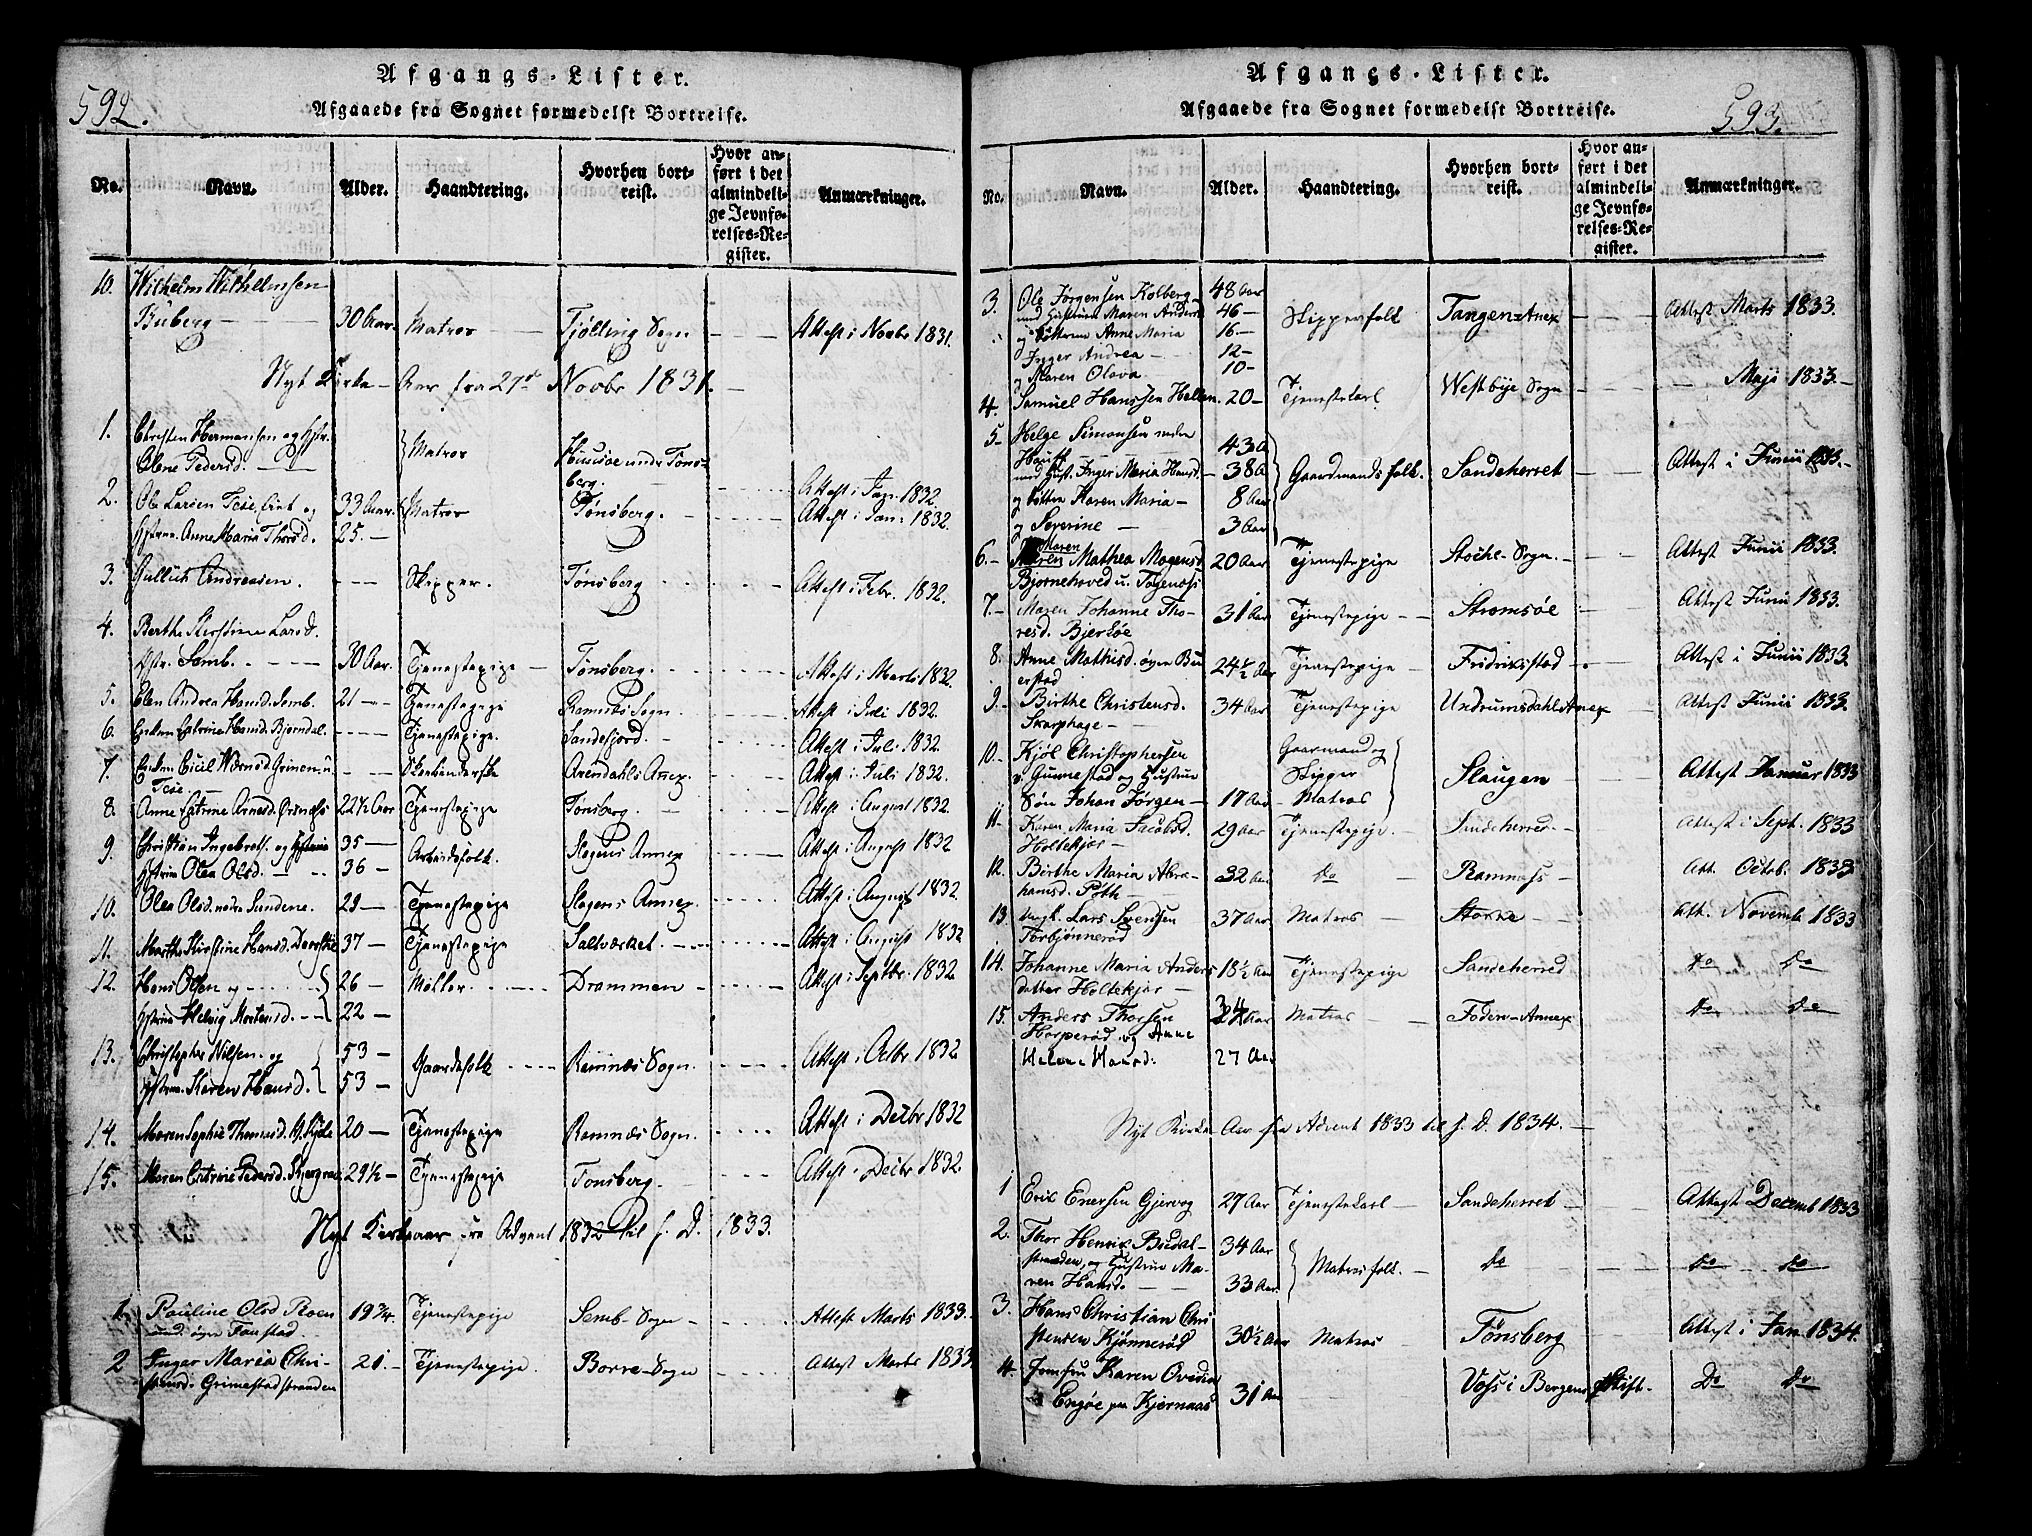 592.
Afgangs-Lister.
Afgaaede fra Sognet formedelst Bortreise.
No. Navn. Alder. Haandtering. Hvorhen bortreist. Hvor anført i det almindelige Jevnførelses-Register. Anmærkninger.
10. Wilhelm Wilhelmsen
Buberg 30 Aar. Matros Tjølling Sogn Attest i Novbr 1831.
Nyt Kirke-Aar fra 27de Novbr 1831.
1. Christen Hermansen og Hstr.
Olene Pedersd. Matros Husøe under Tønsberg. Attest i Jan. 1832
2. Ole Larsen Teie, og 33 Aar. Matros Tønsberg. Attest i Jan: 1832.
Hstruen Anne Maria Thorsd. 25.
3. Gullich Andreasen. Skipper. Tønsberg Attest i Febr. 1832.
4. Berthe Kirstine Larsd.
Semb. 30 Aar. Tjenestepige Tønsberg. Attest i Marts 1832.
5. Elen Andrea Hansd. Semb. 21 Tjenestepige Ramnæs Sogn. Attest i Juli 1832.
6. Enken Catrine Hansd. Bjørndal. Tjenestepige. Sandefjord. Attest i Juli 1832
7. Enken
Teie. Arendahls Annex. Attest i Juli 1832.
8. Anne Catrine Arnesd. 22½ Aar Tjenestepige Tønsberg. Attest i August 1832.
9. Christian Ingebretsen og 35 Arbeidsfolk. Slagens Annex Attest i August 1832
Hstruen Olea Olsd. 36
10. Olea Olsd. nedre Sundene. 29 Tjenestepige Slagens Annex. Attest i August 1832.
11. Marthe Kirstine Hansd. 37 Tjenestepige Saltværket. Attest i August 1832
12. Hans Olsen og 26 Møller Drammen Attest i Septbr. 1832
Hstruen Helvig Mortensd. 22
13. Christopher Nilsen og 53 Gaardsfolk Ramnæs Sogn. Attest i Octbr 1832
Hstruen Karen Hansd. 53
14. Maren Sophie Thomasd. 20 Tjenestepige Ramnæs Sogn. Attest i Decbr 1832
15. Maren Catrine Pedersd. 29½ Tjenestepige Tønsberg. Attest i Decbr 1832.
Nyt Kirkeaar fra Advent 1832 til f. D. 1833.
1. Pauline Olsd Roen
øvre Fanstad 19¾ Tjenestepige Semb-Sogn Attest Marts 1833.
2 Inger Maria Chri-
stensd. Grimestadstranden 21. Tjenestepige. Borre-Sogn Attest Marts 1833.
593.
Afgangs-Lister.
Afgaaede fra Sognet formedelst Bortreise.
No. Navn. Alder. Haandtering. Hvorhen bortreist. Hvor anført i det almindelige Jevnførelses-Register. Anmærkninger.
3. Ole Jørgensen Kolberg 48 Aar
med Hustrue Maren Anders 46 Skipperfolk Tangen-Anex Attest Marts 1833.
og Døttrene Anne Maria 16
Inger Andrea 12
og Maren Olava 10
4. Samuel Hanssen Hellen 20 Tjenestekarl Westbye Sogn Maji 1833.
5 Helge Simonsen nedre
43 A
med Hust. Inger Maria Hansd. 38 A Gaardmandsfolk. Sandeherret Attest i Junii 1833.
og Døttre Karen Maria 8 Aar
og Severine 3 Aar
6. Maren Mathea Mogensd 20 Aar Tjenestepige Stokke-Sogn. Attest Junii 1833.
Bjørnehoved u.
7. Maren Johanne Tho-
resd. Bjerkøe 31 Aar Tjenestepige Strømsøe Attest Junii 1833.
8. Anne Mathisd. øvre Bu
erstad 24½ Aar Tjenestepige Fridrikstad Attest i Junii 1833
9. Birthe Christensd.
Skarphage 34 Aar Tjenestepige Undrumsdahls Anex Attest Junii 1833.
10. Kjøl Christophersen Gaarmand og
p. Gunnestad og Hustrue Skipper Slaugen Attest Januar 1833
Søn Johan Jørgen 17 Aar Matros
11. Karen Maria Jacobsd.
Holtekjær 29 Aar Tjenestepige. Sandeherred Attest i Sept. 1833
12. Birthe Maria Abra-
hamsd. Poth 32 Aar do Ramnæss Att. Octob. 1833
13 Ungk. Lars Svensen
Torbjønnerød 37 Aar Matros Att. Novemb 1833
14. Johanne Maria Anders
datter Holtekjær 18½ Aar Tjenestepige Sandeherred do do
15. Anders Thorsen 34 Aar Matros Foden-Annex do do
Horperød og Anne
Helene Hansd. 27 Aar
Nyt Kirke Aar fra Advent 1833 til f. D. 1834.
1 Eric Enersen Gjervog 27 Aar Tjenestekarl Sandeherret Attest Decemb 1833
2. Thor Henrik Budal- 34 Aar
stranden, og Hustrue Ma- Matrosfolk. do do do
ren Hansd. 33 Aar
3. Hans Christian Chri
stensen Kjønnerød 30½ Aar Matros Tønsberg Attest i Jan 1834.
4. Jomfru Karen Ovidia
Engøe paa Kjernaas 31 Aar Voss i Bergens Stift. do do